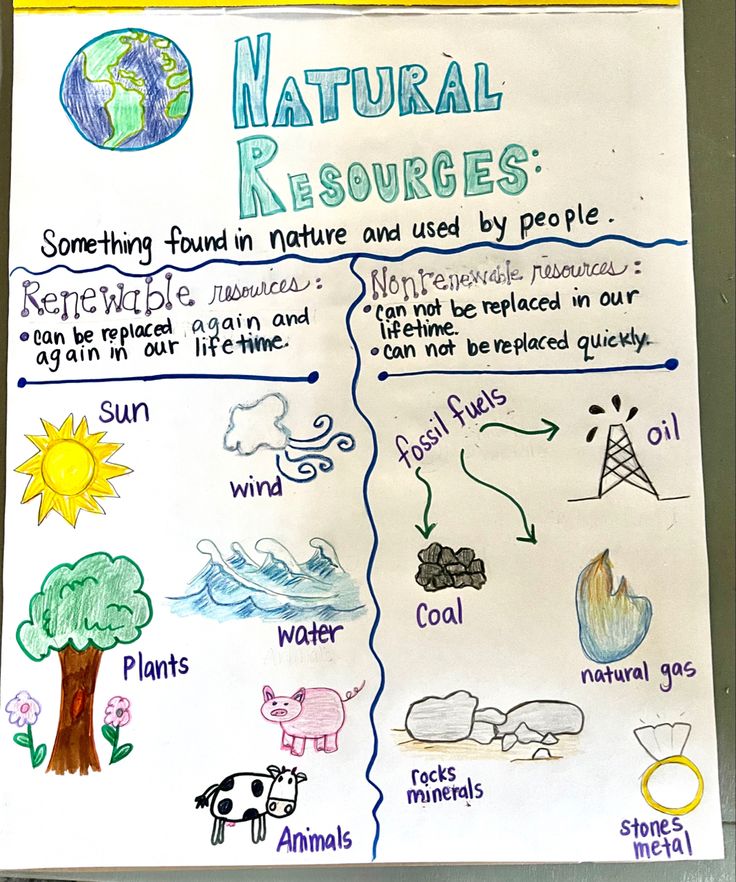 NATURAL
RESOURCES:
Something found in nature and used by people.
Renewable resources:
• can be replaced again and
again in our lifetime.
Nonrenewable resources:
• can not be replaced in our
lifetime.
• can not be replaced quickly.
sun
wind
Plants
water
Animals
fossil fuels
oil
Coal
natural gas
rocks
minerals
stones
metal